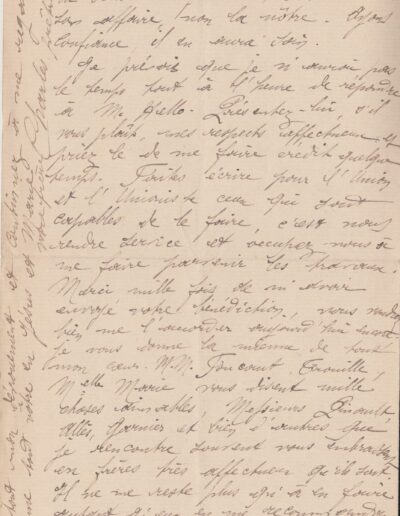 son affaire, non la nôtre. Ayons
confiance, il en aura soin.
Je prévois que je n'aurai pas
le temps tout à l'heure de répondre
à M. Gello. Présentez-lui, s'il
vous plaît, mes respects affectueux et
priez le de me faire crédit quelque
temps. Faites écrire pour l'Union
et l'Unioniste ceux qui sont
capables de le faire, c'est nous
rendre service et occupez-vous à
me faire parvenir les travaux.
Merci mille fois de m'avoir
envoyé votre bénédiction, vous voudrez
bien me l'accorder aujourd'hui encore
Je vous donne la mienne de tout
mon cœur. M.M.
Melle Marie vous disent mille
choses aimables, Messieurs Pinault
Garnier et bien d'autres que
je rencontre souvent vous embrassent
en frères très affectueux qu'ils sont
Il ne me reste plus qu'à en faire
autant
tout mon dévouement et continuez à me
tout vôtre en Jésus et Marie